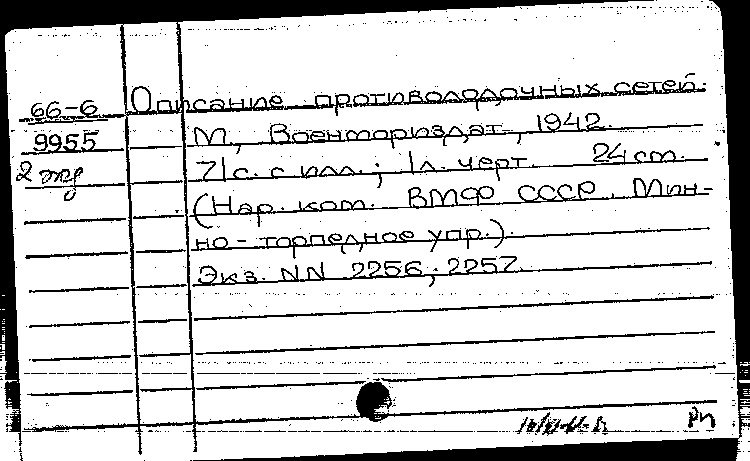 66-6 Описание противолодочных сетей.
9955 М., Военмориздат, 1942.
2 экз 71с. с илл.; 1л. черт. 24 cm.
(Нар. ком. ВМФ СССР. Мин-
но-торпедное упр.).
Экз. NN 2256; 2257.
Рп